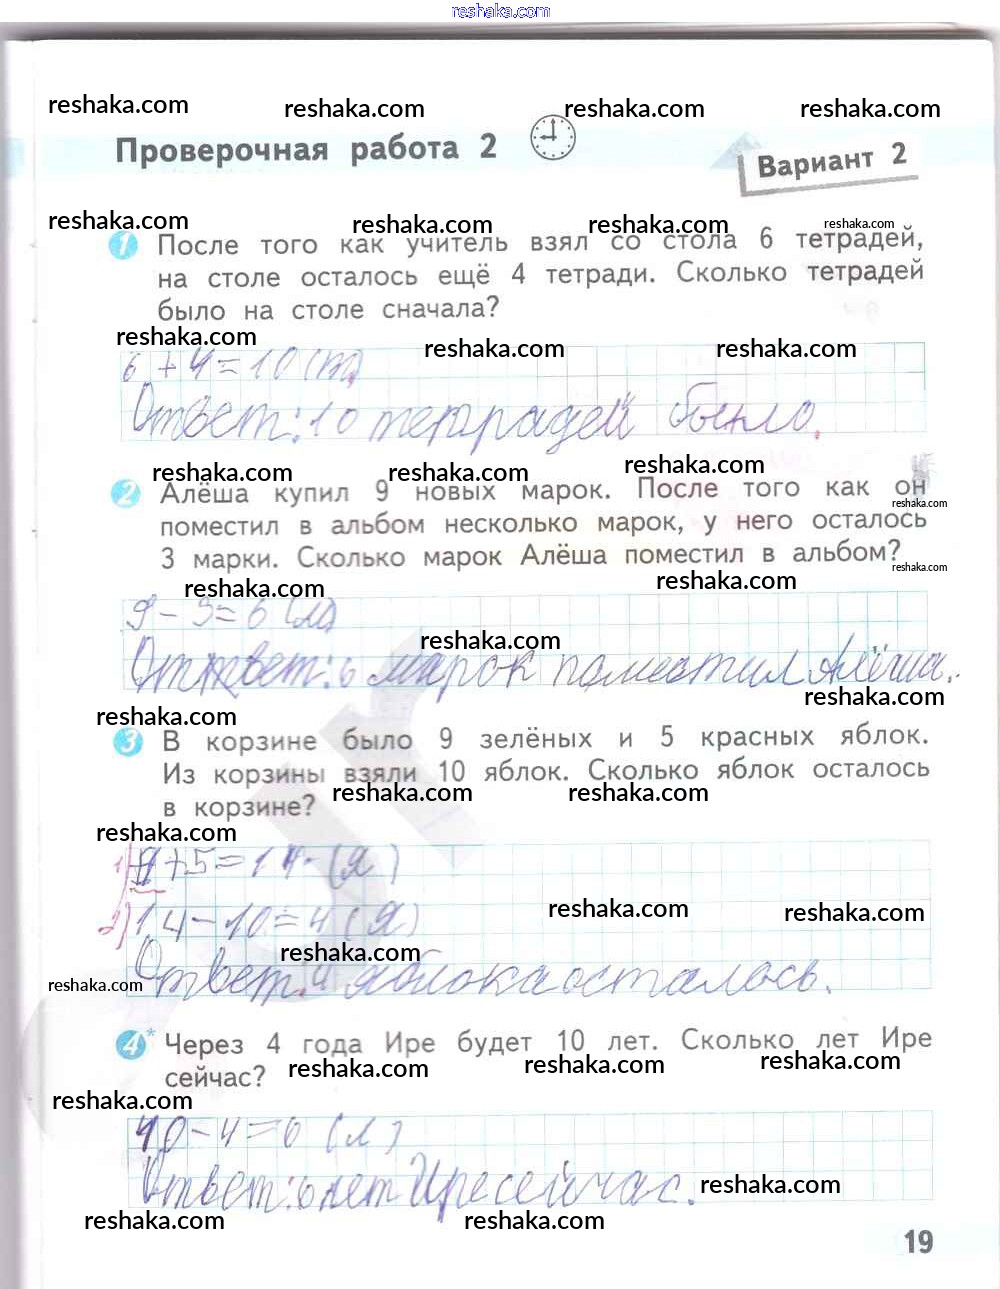 reshaka.com
reshaka.com reshaka.com reshaka.com reshaka.com
Проверочная работа 2
Вариант 2
reshaka.com reshaka.com reshaka.com reshaka.com
1 После того как учитель взял со стола 6 тетрадей,
на столе осталось ещё 4 тетради. Сколько тетрадей
было на столе сначала?
reshaka.com reshaka.com reshaka.com
6 + 4 = 10 (т)
Ответ: 10 тетрадей было.
reshaka.com reshaka.com reshaka.com
2 Алёша купил 9 новых марок. После того как он
reshaka.com
поместил в альбом несколько марок, у него осталось
3 марки. Сколько марок Алёша поместил в альбом?
reshaka.com
reshaka.com reshaka.com
9 - 3 = 6 (м)
reshaka.com
Ответ: 6 марок поместил Алёша.
reshaka.com
reshaka.com
3 В корзине было 9 зелёных и 5 красных яблок.
Из корзины взяли 10 яблок. Сколько яблок осталось
reshaka.com reshaka.com
в корзине?
reshaka.com
1) 9+5=14 (я)
2) 14-10=4 (я)
reshaka.com reshaka.com
reshaka.com
Ответ: 4 яблока осталось.
reshaka.com
4* Через 4 года Ире будет 10 лет. Сколько лет Ире
сейчас?
reshaka.com reshaka.com reshaka.com
reshaka.com
10-4=6 (л)
Ответ: 6 лет Ире сейчас.
reshaka.com
reshaka.com reshaka.com
19